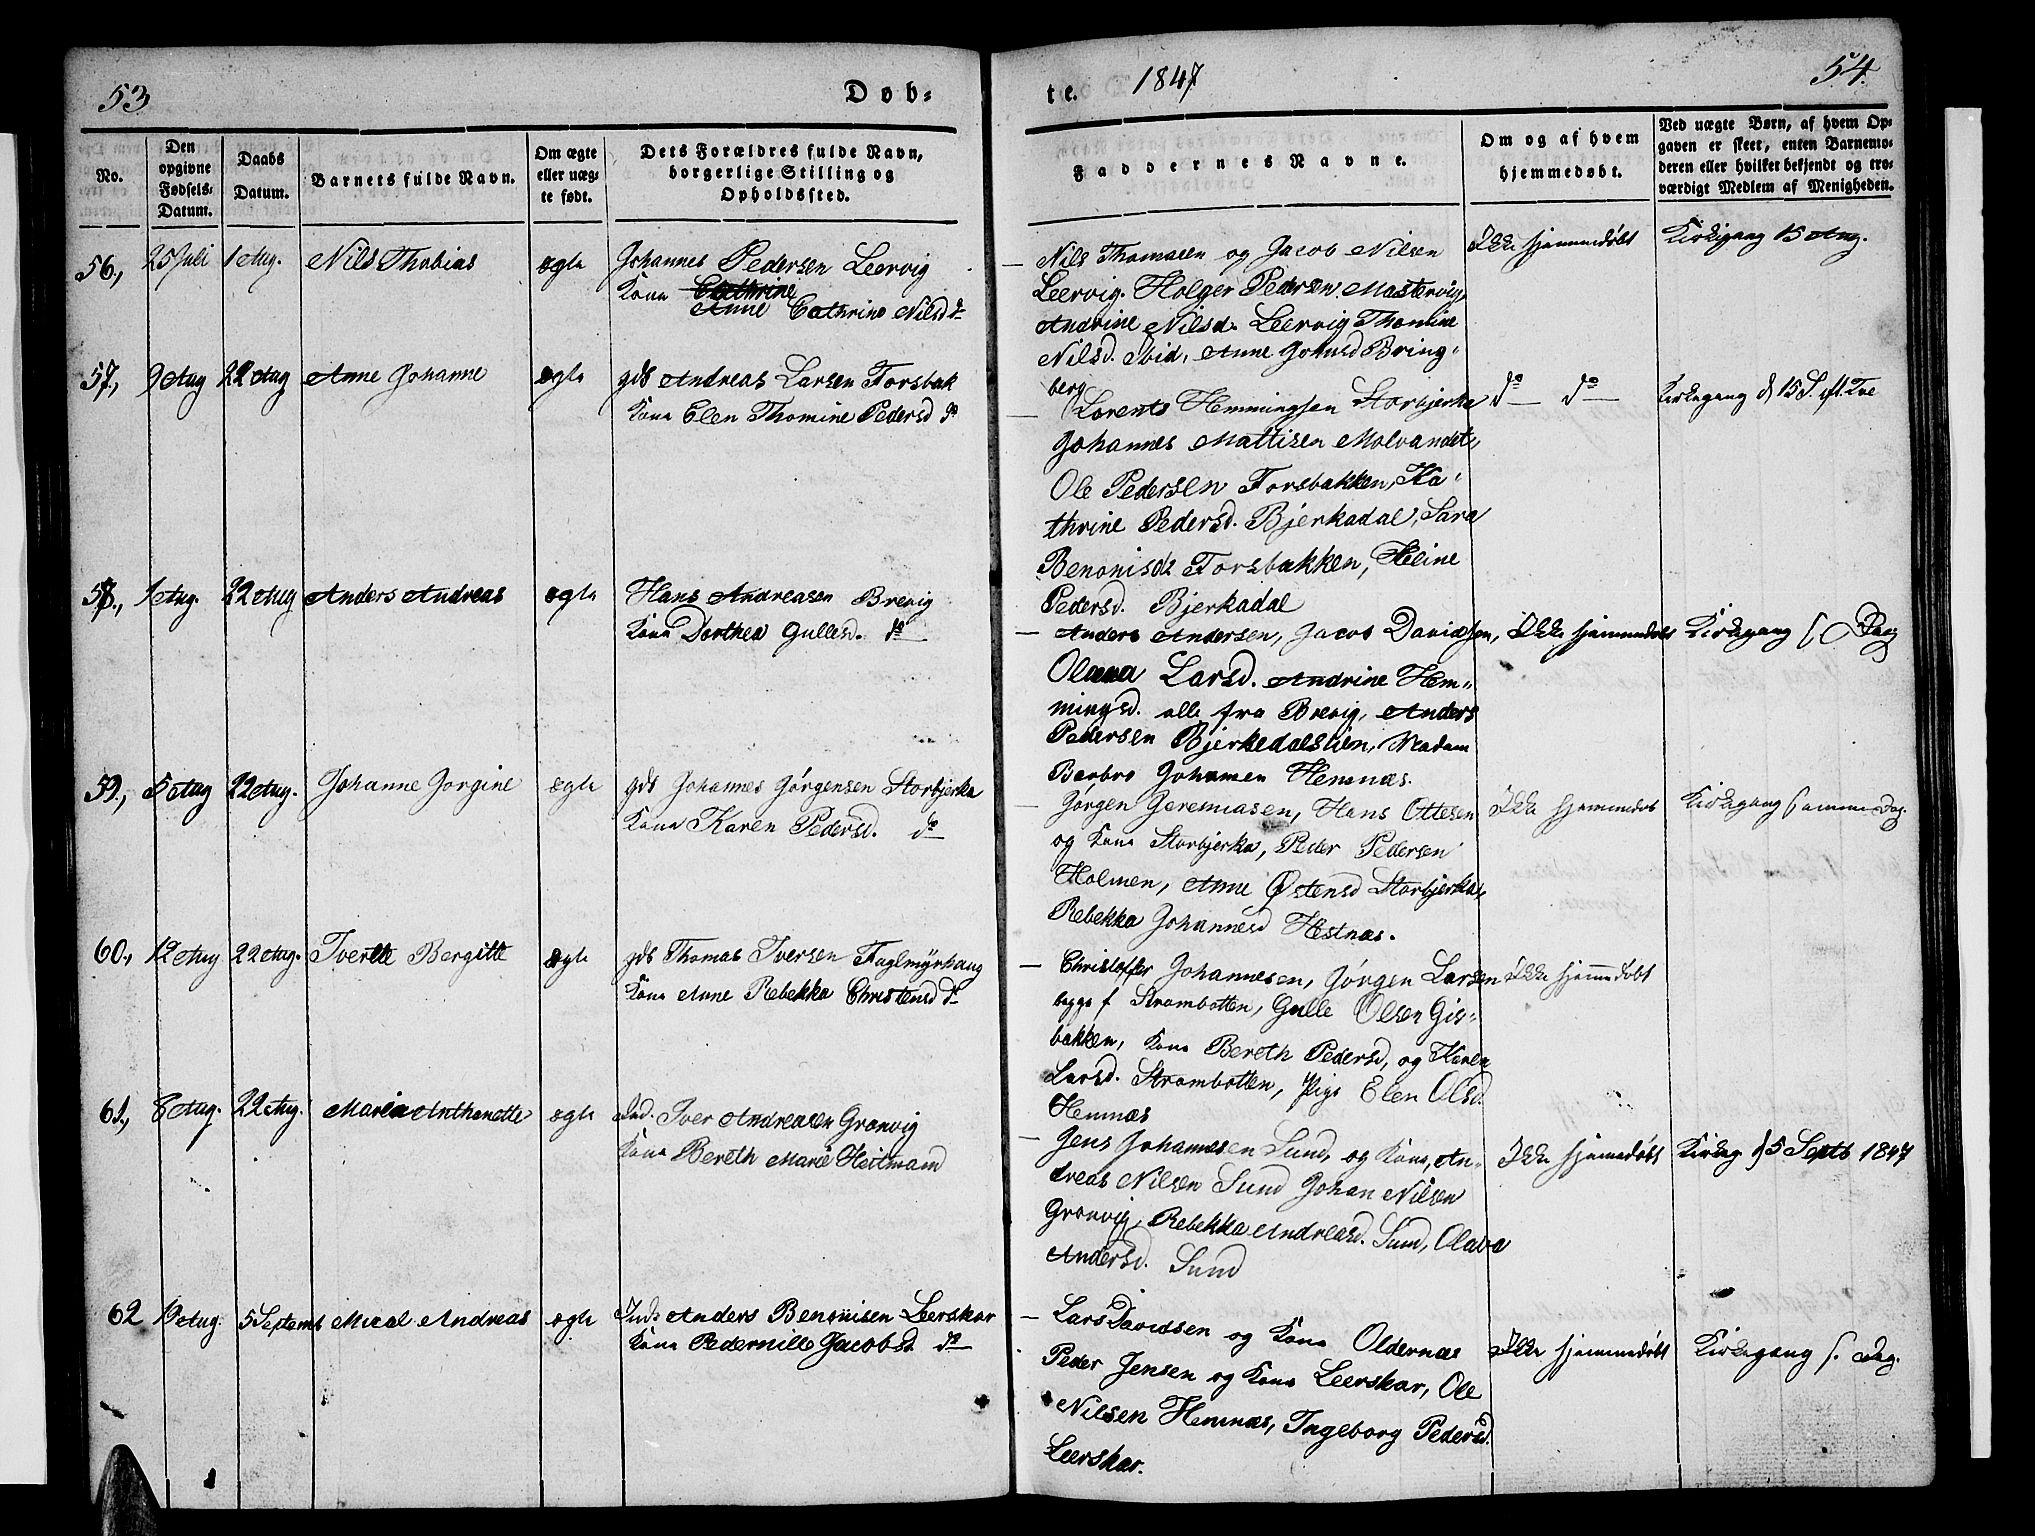 53
Døb-
te.
1847
54.
No.
Den opgivne Fødsels-Datum.
Daabs Datum.
Barnets fulde Navn.
Om ægte eller uæg-te født.
Dets Forældres fulde Navn, borgerlige Stilling og Opholdssted.
Faddernes Navne.
Om og af hvem hjemmedøbt.
Ved uægte Børn, af hvem Op-gaven er skeet, enten Barnemo-deren eller hvilket bekjendt og tro-værdigt Medlem af Menigheden.
56., 25 Juli 1 Aug. Nils Thobias ægte Johannes Pedersen Leervig
Kone Cathrine
Anne Cathrine Nilsd do
Nils Thomasen og Jacob Nilsen
Leervig. Holger Pedersen Mastervig
Andrine Nilsd. Leervig Thomine
Nilsd. Ibid, Anne Johnsd Bring-
berg
Ikke hjemmedøbt Kirkegang 15 Aug.
57., 9 Aug 22 Aug Anne Johanne ægte gds Andreas Larsen Forsbak
Kone Elen Thomine Pedersd do
Lorents Hemmingsen Storbjerka
Johannes Mattisen Molvandet,
Ole Pedersen Forsbakken, Ka-
thrine Pedersd. Bjerkadal, Sara
Benonisd: Forsbakken, Heline
Pedersd. Bjerkadal
do do Kirkegang d 15 S. eft. Tre
58., 1 Aug. 22 Aug Anders Andreas ægte Hans Andreasen Brevig
Kone Dorthea Gullesd. do
Anders Andersen, Jacob Davidsen,
Olava Larsd. Andrine Hem-
mingsd. alle fra Brevig, Anders
Pedersen Bjerkedalslien, Madam
Barbro Johansen Hemnæs.
Ikke hjemmedøbt Kirkegang s Dag
59., 5 Aug 22 Aug. Johanne Jorgine ægte gds Johannes Jørgensen Storbjerka
Kone Karen Pedersd. do
Jørgen Jeremiasen, Hans Ottesen
og Kone Storbjerka, Peder Pedersen
Holmen, Anne Østensd Storbjerka,
Rebekka Johannesd Hestnæs.
Ikke hjemmedøb Kirkegang samme Dag.
60., 12 Aug 22 Aug. Iverette Bergitte ægte gds Thomas Iversen Fuglmyrhaug
Kone Anne Rebekka Christensd do
Christoffer Johannesen, Jørgen Larsen
begge f Strombotten, Gulle Olsen Gis-
bakken, Kone Bereth Pedersd, og Karen
Larsd. Strombotten, Pige Elen Olsd.
Hemnæs
Ikke hjemmedøbt
61., 8 Aug. 22 Aug. Maria Anthonette ægte Ind. Iver Andreasen Granvig
Kone Bereth Marie Heitmand
Jens Johannesen Sund, og Kone, An-
dreas Nilsen Sund Johan Nilsen
Granvig, Rebekka Andreasd. Sund, Olava
Andersd. Sund
Ikke hjemmedøbt Kirkeg d 5 Septb 1847
62 19 Aug. 5 Septemb Mical Andreas ægte Ind: Anders Benonisen Leerskar
Kone Pedernille Jacobsd do
Lars Davidsen og Kone Oldernæs
Peder Jensen og Kone Leerskar, Ole
Nilsen Hemnæs, Ingeborg Pedersd.
Leerskar.
Ikke hjemmedøbt Kirkegang s. Dag.